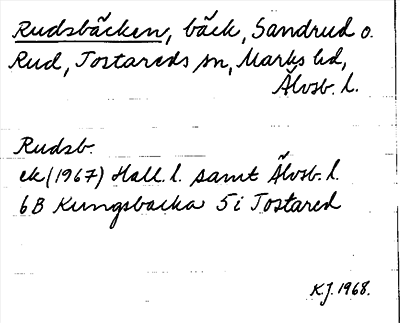 Rudsbäcken, bäck, Sandrud o.
Rud, Tostareds sn, Marks hd,
Älvsb. l.
Rudsb.
ek (1967) Hall. l. samt Älvsb. l.
6B Kungsbacka 5i Tostared
K.J. 1968.